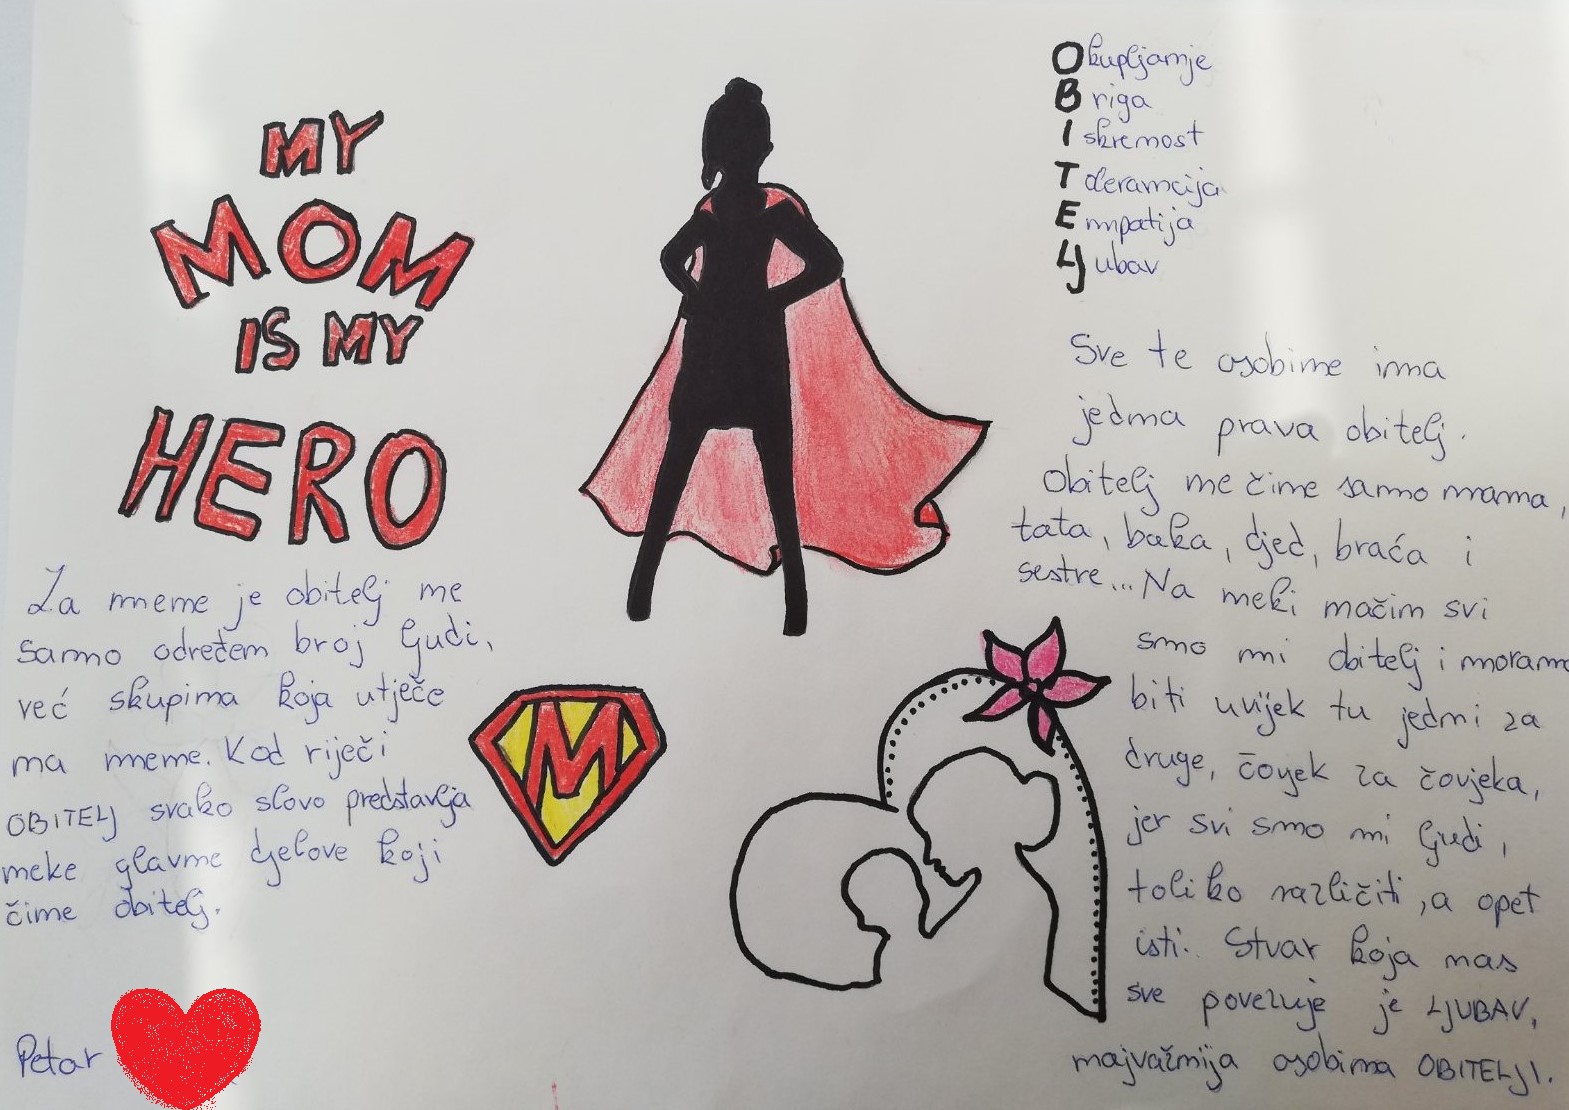 MY
MOM
IS MY
HERO
Za mene je obitelj ne
samo određen broj ljudi,
već skupina koja utječe
na mene. Kod riječi
OBITELJ svako slovo predstavlja
neke glavne djelove koji
čine obitelj.
Petar
M
Okupljanje
Briga
Iskrenost
Tolerancija
Empatija
Ljubav
Sve te osobine ima
jedna prava obitelj.
Obitelj ne čine samo mama,
tata, baka, djed, braća i
sestre... Na neki način svi
smo mi obitelj i moramo
biti uvijek tu jedni za
druge, čovjek za čovjeka,
jer svi smo mi ljudi,
toliko različiti, a opet
isti. Stvar koja nas
sve povezuje je LJUBAV,
najvažnija osobina OBITELJI.